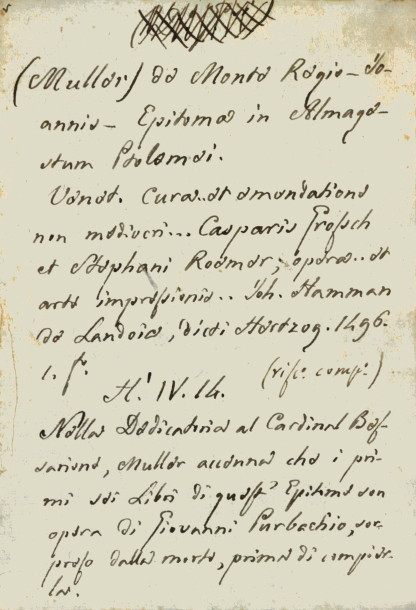 (Muller) de Monte Regio- Jo-
annis- Epitoma in Almage-
stum Ptolemei.
Venet. Cura..et emendatione
non mediocri... Casparis Grossch
et Stephani Roemer; opera..et
arte impressionis.. Joh. Hamman
de Landoia, dicti Hertzog. 1496.
1. f.º
H.! IV. 14. (risc.º comp.º)
Nella Dedicatoria al Cardinal Bes-
sarione, Muller accenna che i pri-
mi sei Libri di quest' Epitime son
opera di Giovanni Purbachio, sor-
preso dalla morte, prima di compier-
la.